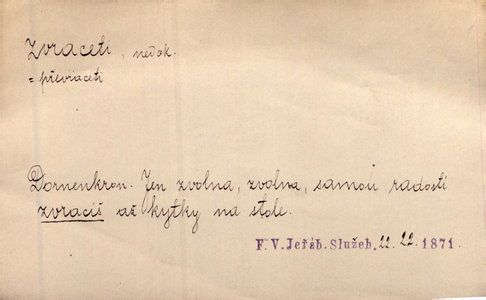 zvraceti, nedok.
= převraceti
Dornenkron. Jen zvolna, zvolna, samou radostí
zvracíš až kytky na stole.
F. V. Jeřáb. Služeb. 22. 22. 1871.